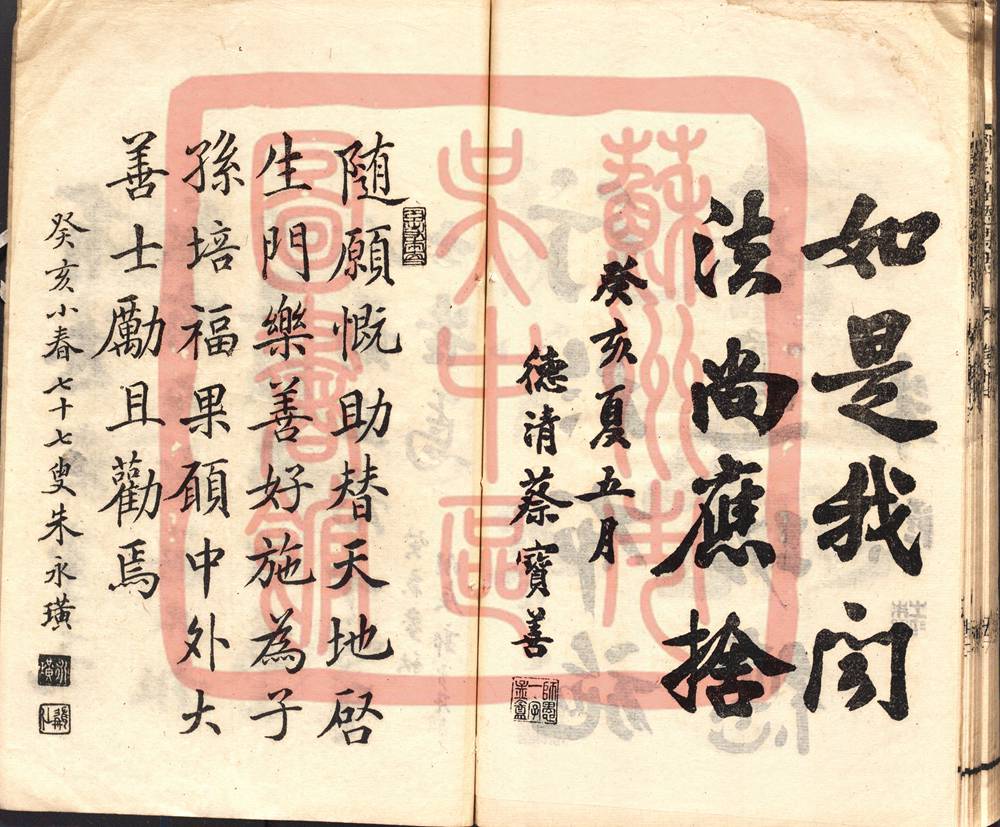 如是我聞
法尚應捨
癸亥夏五月
德清蔡寶善
隨願慨助替天地啓
生門樂善好施為子
孫培福果願中外大
善士勵且勸焉
癸亥小春七十七叟朱永璜
蘇州市
吴中區
圖書館